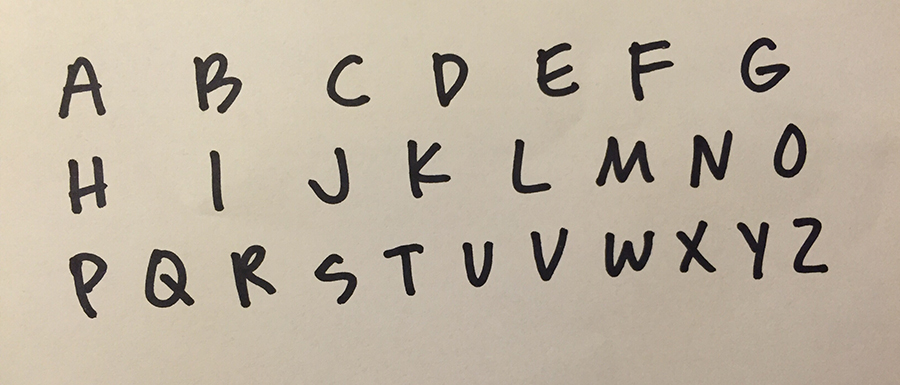 A B C D E F G
H I J K L M N O
P Q R S T U V W X Y Z